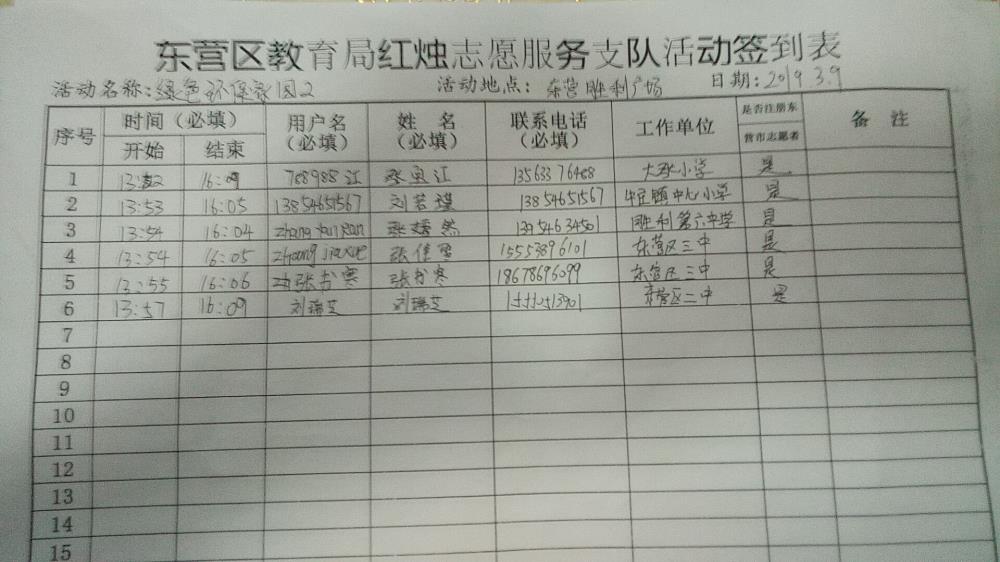 东营区教育局红烛志愿服务支队活动签到表
活动名称:绿色环保家园2 活动地点: 东营胜利广场 日期:2019.3.9
序号 时间(必填) 用户名(必填) 姓 名(必填) 联系电话(必填) 工作单位 是否注册东营市志愿者 备 注
开始 结束
1 16:09 788985江 张 江 小学 是
2 13:53 16:05 13854651567 刘若瑾 13854651567 中心小学 是
3 13:54 16:04 zhang yan ran 张嫣然 胜利第六中学 是
4 13:54 16:05 张佳雪 15553896101 东营区三中 是
5 13:55 16:06 张书寒 张书寒 18678696099 东营区三中 是
6 13:57 16:09 刘瑞芝 刘瑞芝 东营区二中 是
7
8
9
10
11
12
13
14
15